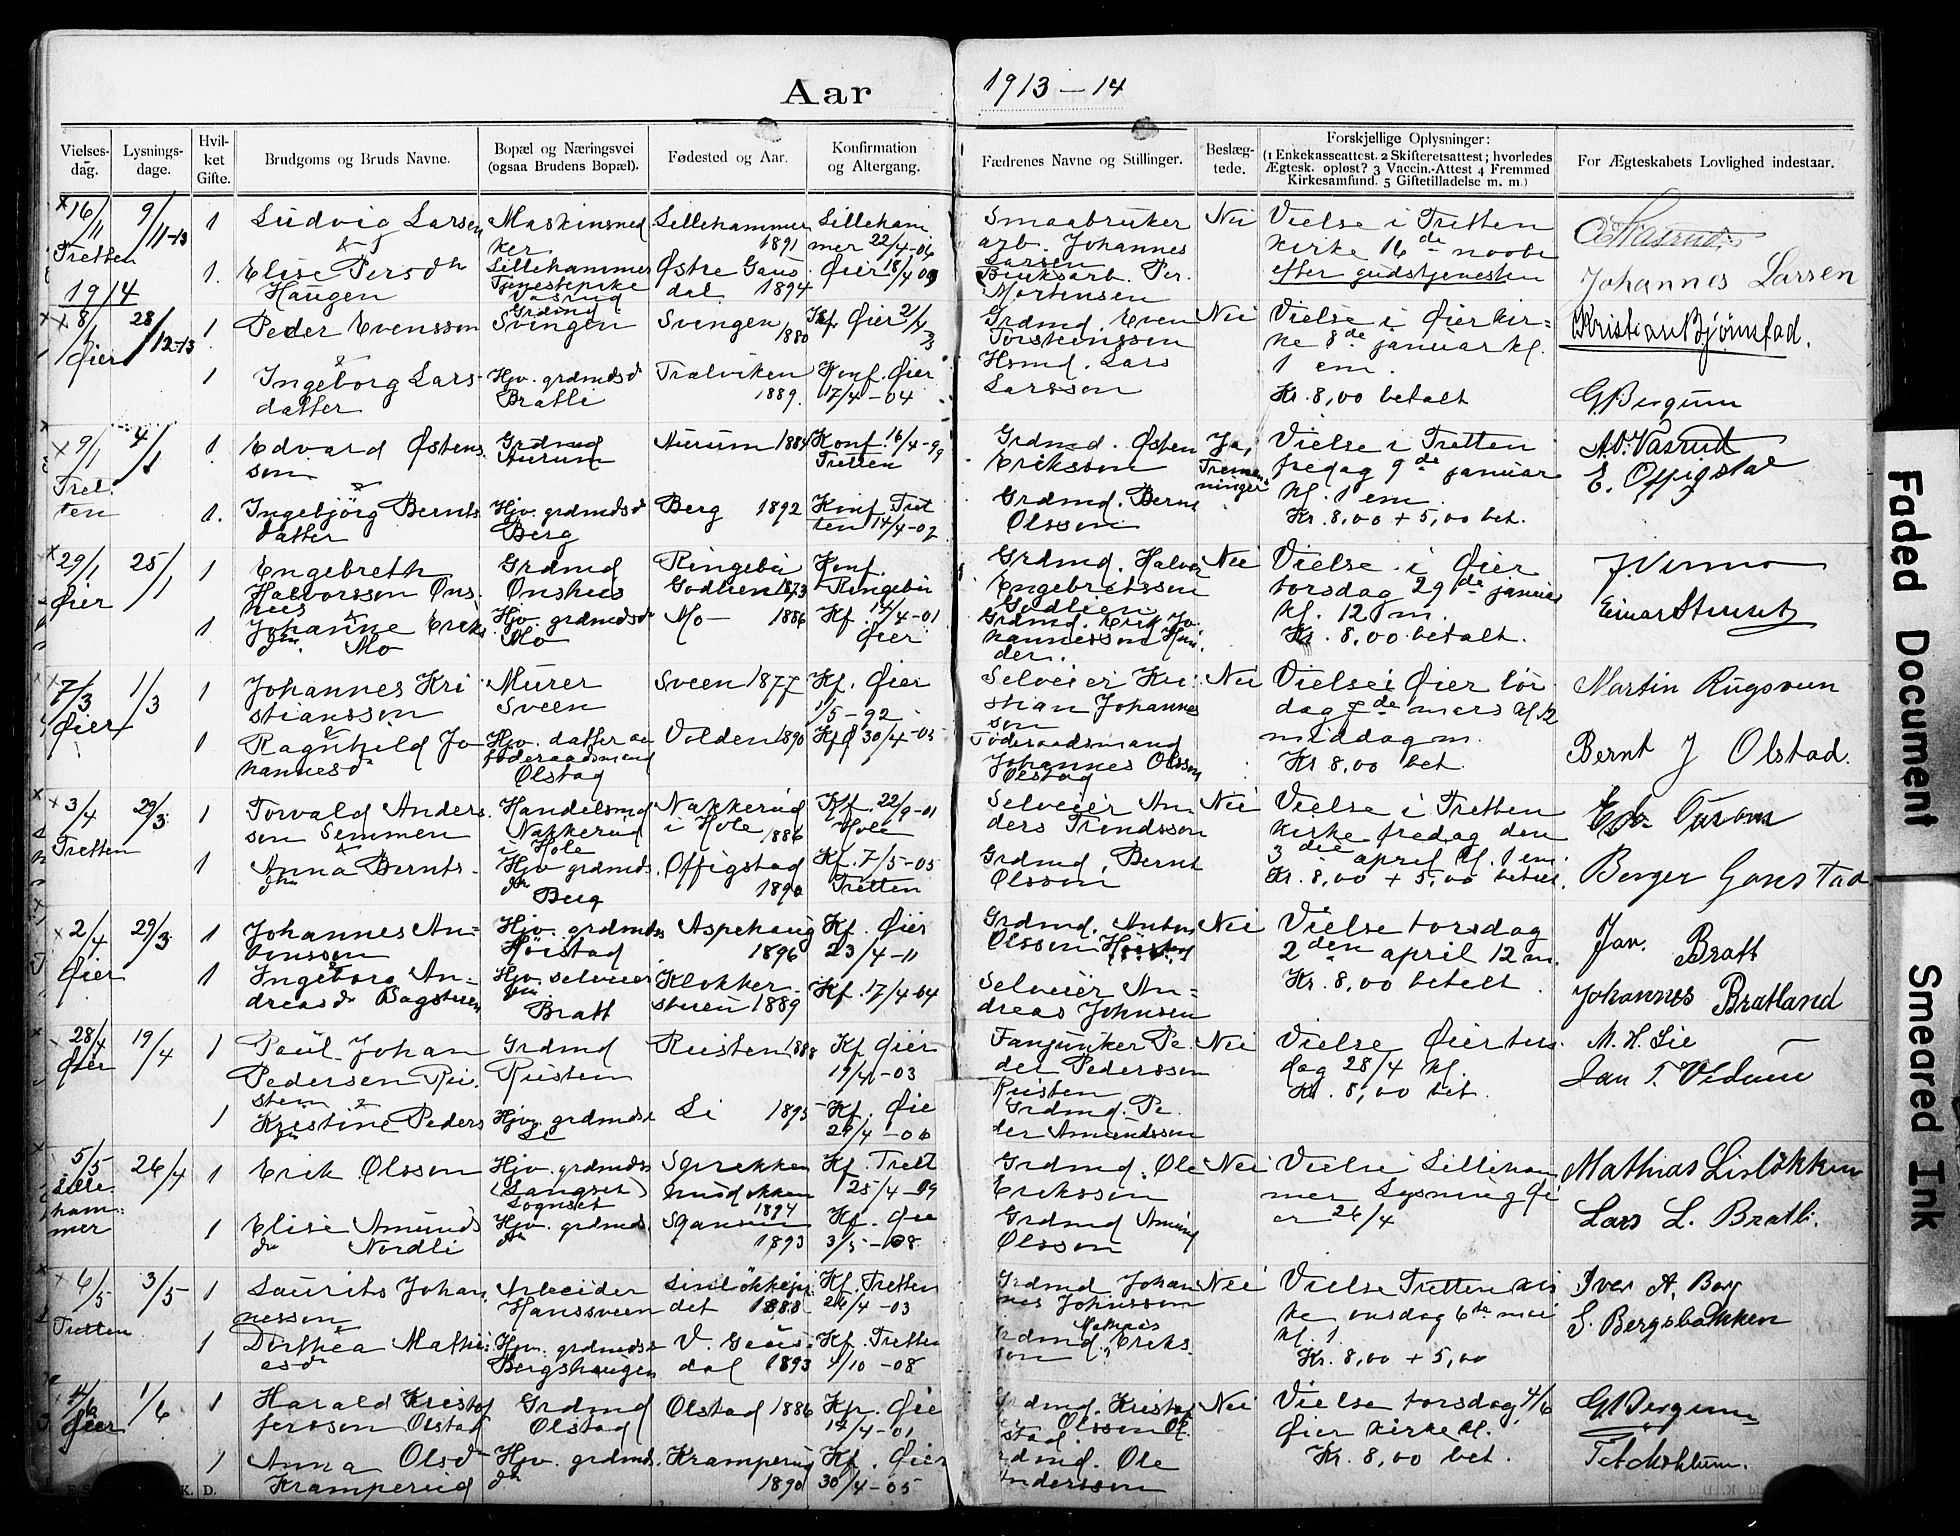 Aar
1913–14
Vielses-dag.
Lysnings-dage.
Hvil-ket Gifte.
Brudgoms og Bruds Navne.
Bopæl og Næringsvei (ogsaa Brudens Bopæl).
Fødested og Aar.
Konfirmation og Altergang.
Fædrenes Navne og Stillinger.
Beslæg-tede.
Forskjellige Oplysninger:
(1 Enkekasseattest. 2 Skifteretsattest; hvorledes
Ægtesk. opløst? 3 Vaccin.-Attest 4 Fremmed
Kirkesamfund. 5 Giftetilladelse m. m.)
For Ægteskabets Lovlighed indestaar.
16/11 Tretten
9/11-13
1
Ludvig Larsen
Lillehammer 1891
Smaabruker
arb. Johannes
Larsen
Nei
Vielse i Tretten
kirke 16de novbr
efter gudstjenesten
1.
Elise Persdtr
Haugen
Lillehammer
Tjenestepike
Østre Gausdal 1894
Øier
Bruksarb. Per
Mortensen
Johannes Larsen
1914
8/1 Øier
28/12-13
1
Peder Evensson
Grdmd
Svingen
Svingen 1880
Grdmd. Even
Torsteinssen
Nei
Vielse i Øier kirke
8de januar kl.
1 em.
Kr. 8,00 betalt
Kristian Bjørnstad.
1
Ingeborg Lars-
datter
Hjv. grdmdsd
Bratli
Trælviken 1889.
Konf. Øier
17/4-04
Hsmd. Lars
Larsson
G Bergum
9/1 Tretten
4/1
1
Edvard Østens
son
Grdmd
Aurum
Aurum 1884
Konf. 16/4-99
Tretten
Grdmd. Østen
Eriksson
Ja, Tremenninger
Vielse i Tretten
fredag 9de januar
kl. 1 em.
Kr. 8,00 + 5,00 bet.
1.
Ingebjörg Bernts
datter
Hjv. grdmdsd
Berg
Berg 1892
Konf. Tretten
14/4-07
Grdmd. Bernt
Olsson
29/1 Øier
25/1
1
Engebreth
Halvorsson Ons
hus
Grdmd
Onshus
Ringebu
Godlien 1873
Konf.
Ringebu
Grdmd. Halvor
Engebretsson
Godlien
Nei
Vielse i Øier
torsdag 29de januar
kl. 12 m.
Kr. 8,00 betalt.
1
Johanne Eriks
dtr. Mo
Hjv. grdmdsd
Mo
Mo – 1886
Kf. 14/4-01
Øier
Grdmd. Erik Jo
hannesson
7/3 Øier
1/3
1
Johannes Kri
stiansson
Murer
Sveen
Sveen 1877
Kf. Øier
1/5-92
Selveier Kri
stian Johannes
son
Nei
Vielse i Øier lør
dag 7de mars kl 12
middag m.
Kr 8,00 bet.
Martin Rugsveen
1
Ragnhild Jo
hannesd
Hjv. datter av
føderaadsmand
Olstad
Volden 1890
Kf Ø 30/4-05
Føderaadsmand
Johannes Olsson
Olstad
Bernt J Olstad.
3/4 Tretten
29/3
1
Torvald Anders
son Semmen
Handelsmd
Nakkerud
i Hole
Nakkerud
i Hole 1886
Kf. 22/9-01
Hole
Selveier An
ders Trondsson
Nei
Vielse i Tretten
kirke fredag den
3die april kl. 1 em.
Kr. 8,00 + 5,00 betalt.
1
Anna Bernts
dtr
Hjv grdmds
dtr
Berg
Offigstad
1890
Kf. 7/5-05
Tretten
Grdmd. Bernt
Olsson
Berger Gonstad
2/4 Øier
29/3
1
Johannes An=
tonsson
Hjv. grdmds
Høistad
Aspehaug
1896
Kf. Øier
23/4-11
Grdmd. Anton
Olsson Høistad
Nei
Vielse torsdag
2den april 12 m.
Kr. 8,00 betalt.
Jav. Bratt
1
Ingeborg An=
dreasdr Bagstuen
Hjv. selveier
dtr
Bratt
Klokker-
stuen 1889
Kf. 17/4-04
Selveier An=
dreas Johnsen
Johannes Bratland
28/4 Øier
19/4
1
Paul Johan
Pedersen Ru
sten
Grdmd
Rusten
Rusten 1888
Kf Øier
19/4-03
Fanjunker Pe
der Pedersson
Rusten
Nei
Vielse Øier tirs
dag 28/4 kl.
Kr. 8,00 bet.
M. H. Lie
1
Kristine Peders
dtr
Hjv. grdmdsd
Li
Li 1895
Kf. Øie
Grdmd. Pe
der Amundsson
5/5 Lillehammer
26/4
1
Erik Olsson
Hjv. grdmds
(Langset)
1894
Kf. Trett
25/4-09
Grdmd. Ole
Eriksson
Nei
Vielse Lilleham
mer Lysning Øi
er 26/4
Mathias Lisløkken
1
Elise Amunds
dtr Nordli
Hjv. grdmds
dtr
1893
Kf. Øie
3/5-08
Grdmd Amund
Olsson
Lars L. Bratli.
6/5 Tretten
3/5
1
Laurits Johan
nesson
Arbeider
Hanssveen
1888
Kf. Tretten
26/4-03
Grdmd. Johan
nes Johnsson
Nei
Vielse Tretten kir
ke onsdag 6te mai
kl. 1.
Kr. 8,00 + 5,00
Iver A. Berg
1
Dorthea Mathi
asdr
Hjv. grdmdsd
Bergshaugen
V. Gaus
dal 1893
Kf. Tretten
4/10-08
Grdmd. Mathias Eriks-
son
S. Bergsbakken
4/6 Øier
1/6
1
Harald Kristof
fersson Olstad
Grdmd
Olstad
Olstad 1886
Kf. Øie
14/4-01
Grdmd. Kristof
fer Olsson Ol
stad
Nei
Vielse torsdag 4/6
Øier kirke kl.
Kr. 8,00 bet.
G Bergum
1
Anna Olsdr
Kramperud
Hjv. grdmds.
dr
Kramperud
1890
Kf. Øier
30/4-05
Grdmd. Ole
Anderssen
Faded Document
Smeared Ink